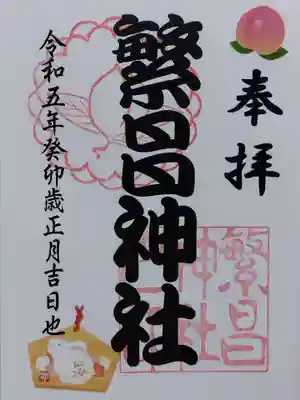 奉拝
繁昌神社
繁昌
神社
令和五年癸卯歳正月吉日也